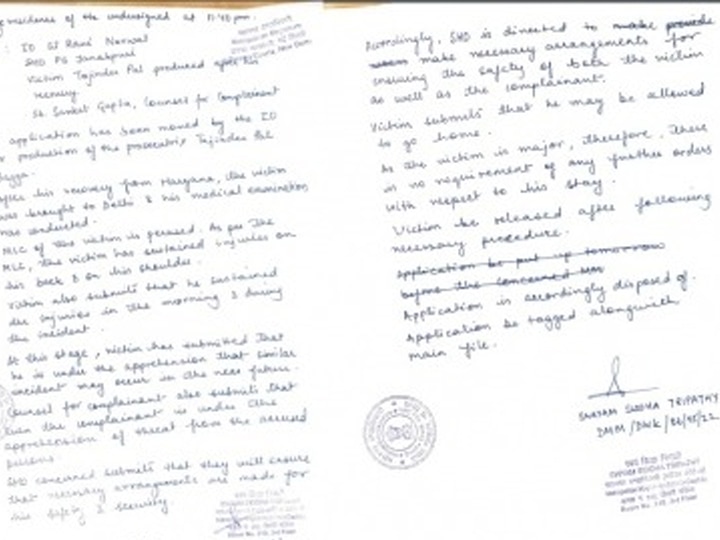 residence of the undersigned at 11:40 pm.
: IO SI Rani Narwal
SHO PS Janakpuri
Victim Tajinder Pal produced after his
recovery
Sh. Sanket Gupta, Counsel for Complainant
application has been moved by the IO
production of the prosecutrix Tajinder Pal
Bagga.
After his recovery from Haryana, the victim
was brought to Delhi & his medical examination
was conducted.
MLC of the victim is perused. As per the
MLC, the victim has sustained injuries on
his back & on his shoulder.
Victim also submits that he sustained
the injuries in the morning & during
the incident.
At this stage, victim has submitted that
he is under the apprehension that similar
incident may occur in the near future.
Counsel for complainant also submits that
even the complainant is under the
apprehension of threat from the accused
persons.
SHO concerned submits that they will ensure
that necessary arrangements are made for
his safety & security.
Accordingly, SHO is directed to make provide
make necessary arrangements for
ensuring the safety of both the victim
as well as the complainant.
Victim submits that he may be allowed
to go home.
As the victim is major, therefore, there
is no requirement of any further orders
with respect to his stay.
Victim be released after following
necessary procedure.
Application be put up tomorrow
before the concerned
Application is accordingly disposed of.
Application be tagged alongwith
main file.
SWAYAM SIDDHA TRIPATHY
DMM/DWK/06/05/22